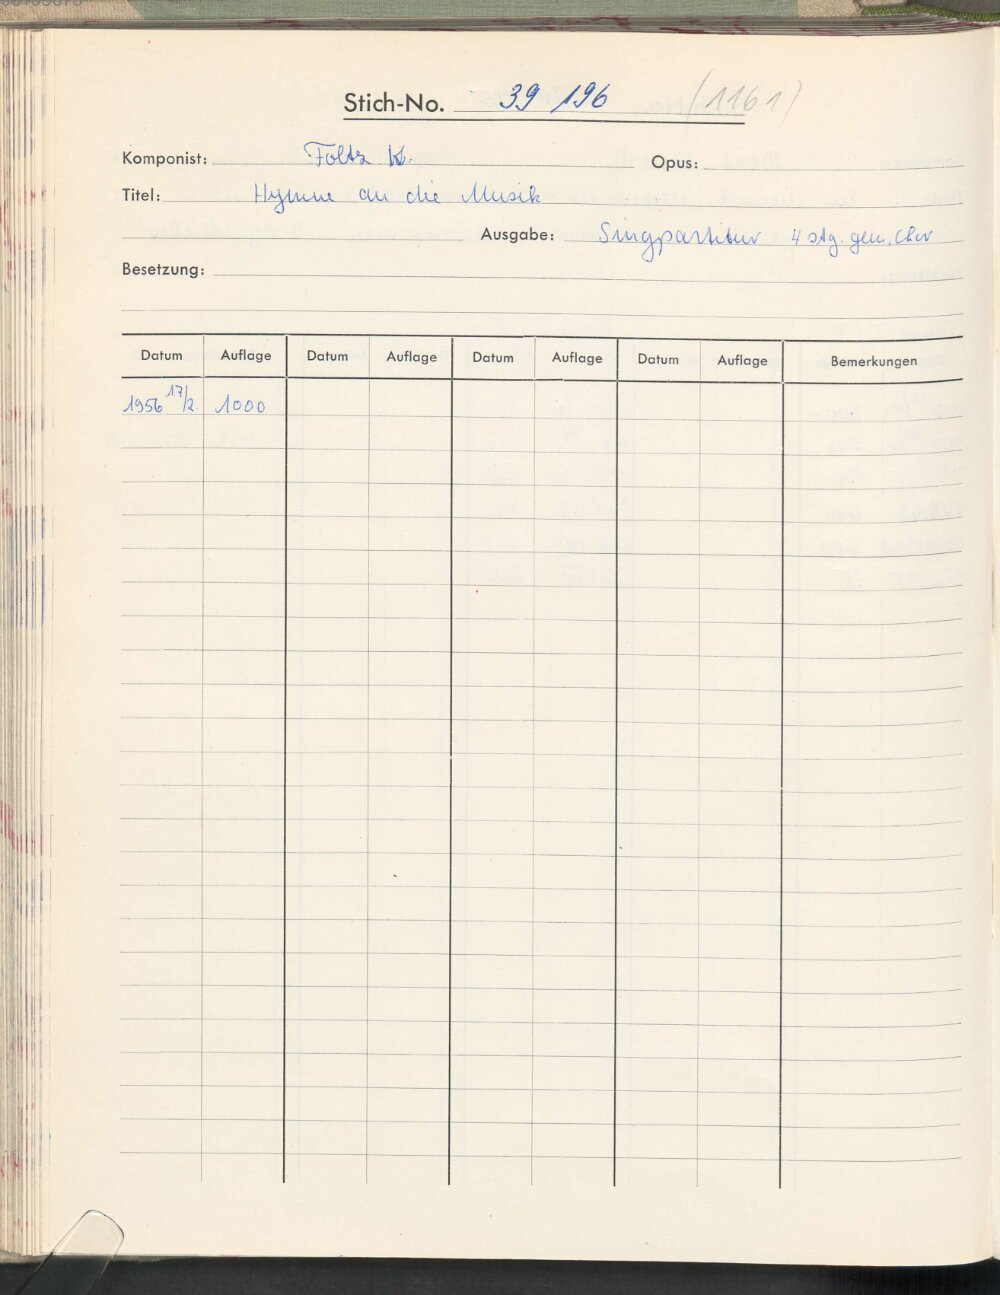 Stich-No. 39 196 (1161)
Komponist: Foltz K. Opus:
Titel: Hymne an die Musik
Ausgabe: Singpartitur 4 stg. gem. Chor
Besetzung:
Datum Auflage Datum Auflage Datum Auflage Datum Auflage Bemerkungen
1956 17/2. 1000